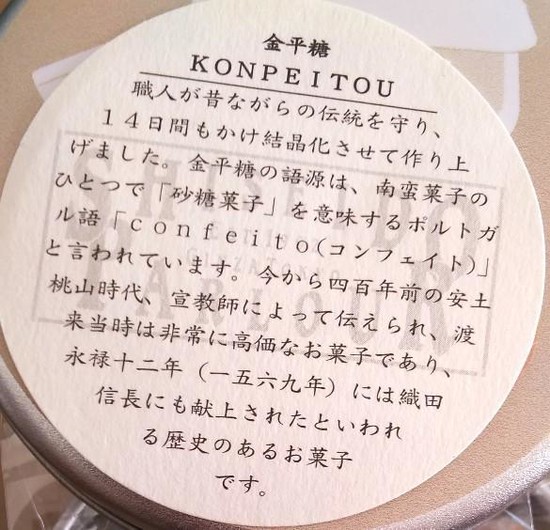 金平糖
KONPEITOU
職人が昔ながらの伝統を守り、
14日間もかけ結晶化させて作り上
げました。金平糖の語源は、南蛮菓子の
ひとつで「砂糖菓子」を意味するポルトガ
ル語「confeito(コンフェイト)」
と言われています。今から四百年前の安土
桃山時代、宣教師によって伝えられ、渡
来当時は非常に高価なお菓子であり、
永禄十二年(一五六九年)には織田
信長にも献上されたといわれ
る歴史のあるお菓子
です。
SHISEIDO
PARLOUR